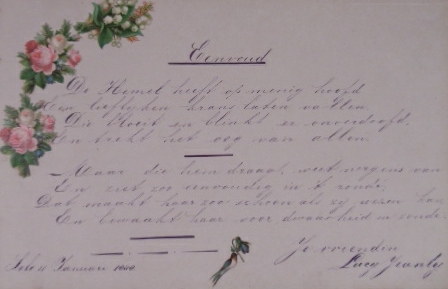 Eenvoud
De Hemel heeft op menig hoofd
Een lieflyken krans laten vallen.
Die bloeit en blinkt er onverdoofd,
En trekt het oog van allen.
Maar die hem draagt, weet nergens van
En ziet zoo eenvoudig in 't ronde,
Dat maakt haar zoo schoon als zy wezen kan
En bewaakt haar voor dwaasheid en zonde.
Je vriendin
11 Januari Lucy